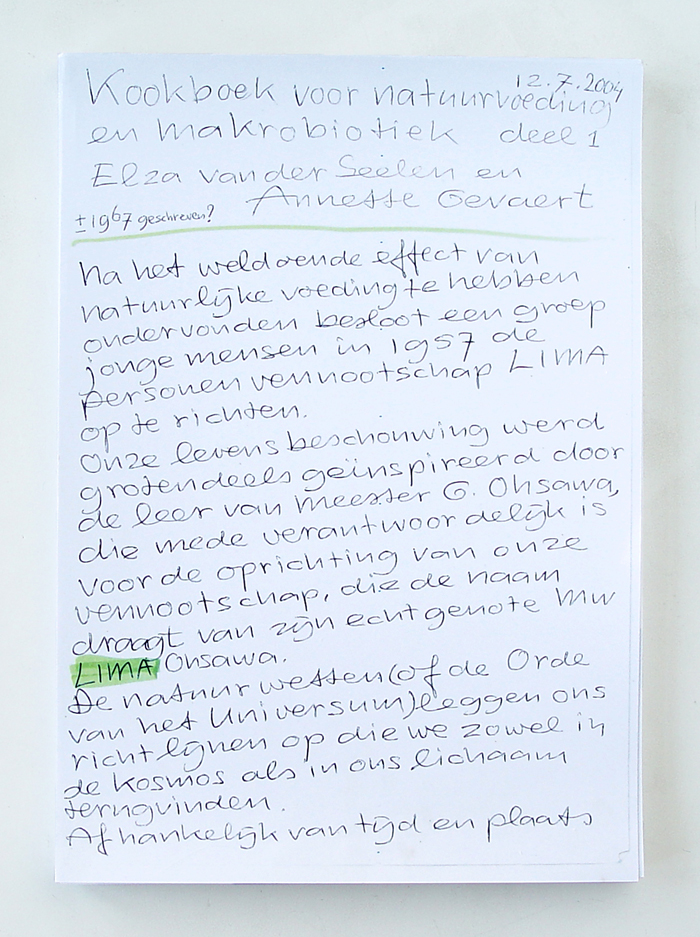 12.7.2004
Kookboek voor natuurvoeding
en makrobiotiek deel 1
Elza van der Seelen en
Annette Gevaert
±1967 geschreven?
Na het weldoende effect van
natuurlijke voeding te hebben
ondervonden besloot een groep
jonge mensen in 1957 de
personen vennootschap LIMA
op te richten.
Onze levensbeschouwing werd
grotendeels geïnspireerd door
de leer van meester G. Ohsawa,
die mede verantwoordelijk is
voor de oprichting van onze
vennootschap, die de naam
draagt van zijn echtgenote mw
LIMA Ohsawa.
De natuurwetten (of de Orde
van het Universum) leggen ons
richtlijnen op die we zowel in
de kosmos als in ons lichaam
terugvinden.
Afhankelijk van tijd en plaats